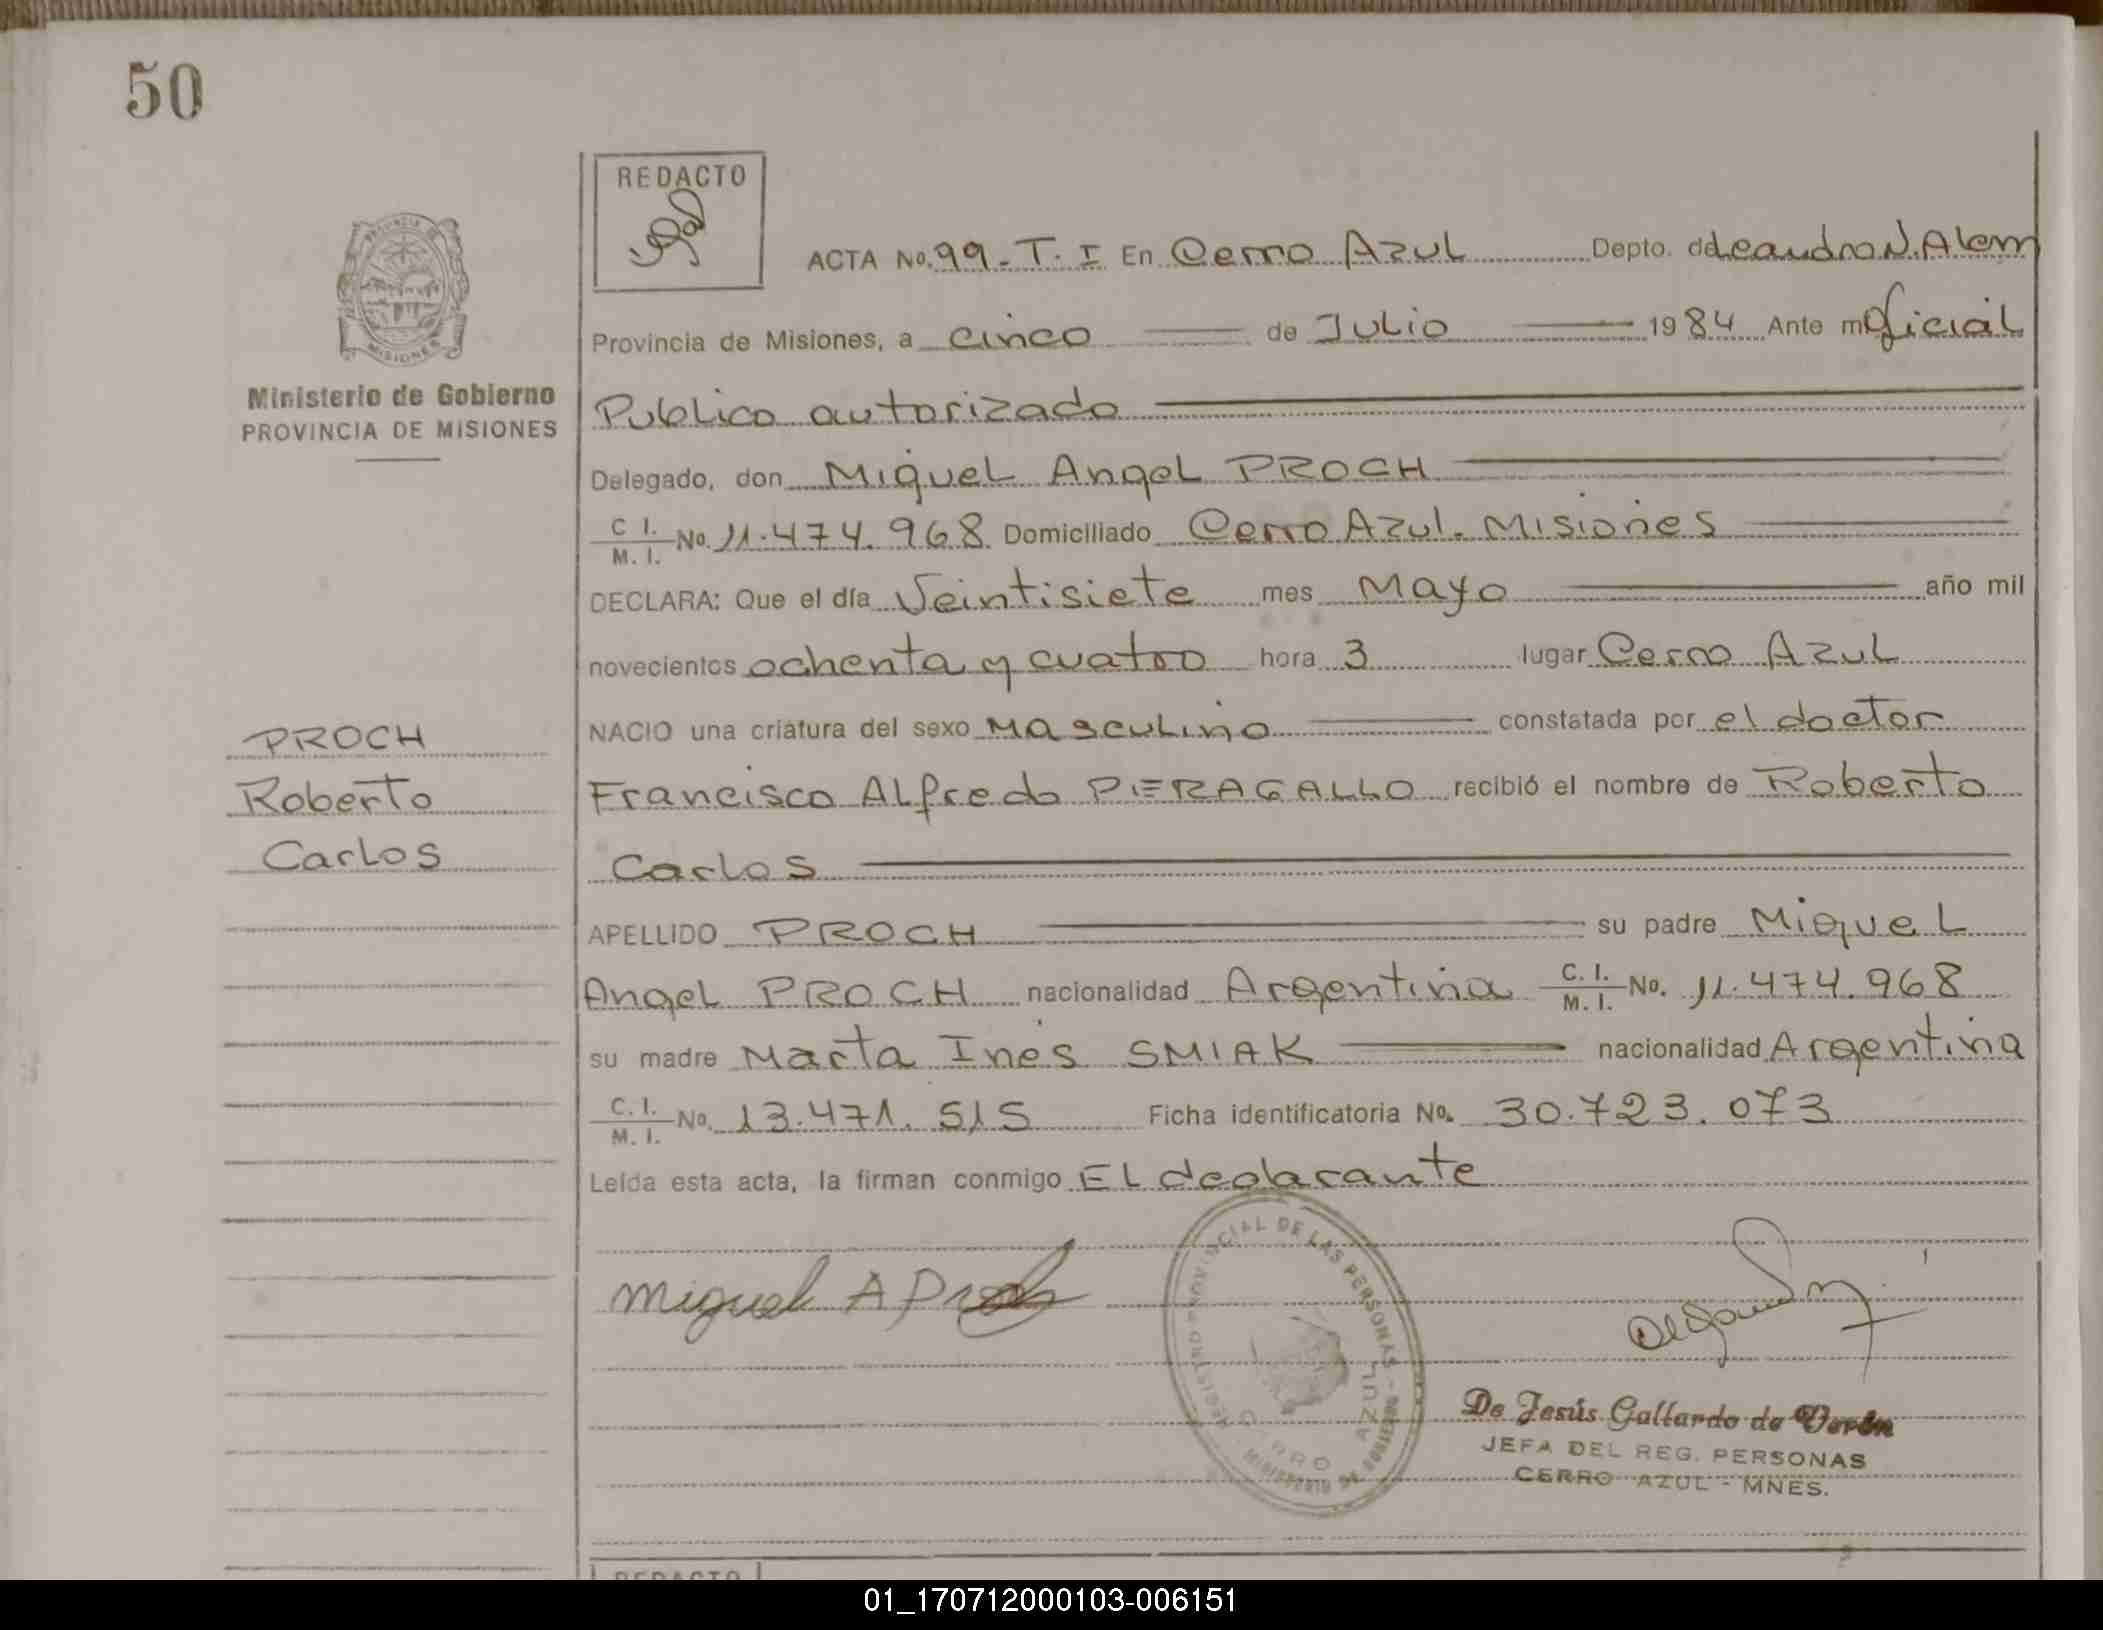 50
REDACTO
ACTA No. 99 - T. I En Cerro Azul Depto. de Leandro N. Alem
Provincia de Misiones, a cinco de Julio 1984 Ante mi Oficial
Publico autorizado
Delegado, don Miguel Angel PROCH
C I. / M. I. No. 11.474.968 Domiciliado Cerro Azul. Misiones
DECLARA: Que el día Veintisiete mes Mayo año mil
novecientos ochenta y cuatro hora 3 lugar Cerro Azul
NACIO una criatura del sexo Masculino constatada por el doctor
Francisco Alfredo PIERAGALLO recibió el nombre de Roberto
Carlos
APELLIDO PROCH su padre Miguel
Angel PROCH nacionalidad Argentina C. I. / M. I. No. 11.474.968
su madre Marta Ines SMIAK nacionalidad Argentina
C. I. / M. I. No. 13.471.515 Ficha identificatoria No. 30.723.073
Leida esta acta, la firman conmigo El declarante
PROVINCIA DE
MISIONES
Ministerio de Gobierno
PROVINCIA DE MISIONES
PROCH
Roberto
Carlos
Miguel A Proch
REGISTRO PROVINCIAL DE LAS PERSONAS - MINISTERIO DE GOBIERNO
CERRO AZUL
De Jesús Gallardo de Verón
JEFA DEL REG. PERSONAS
CERRO AZUL - MNES.
REDACTO
01_170712000103-006151